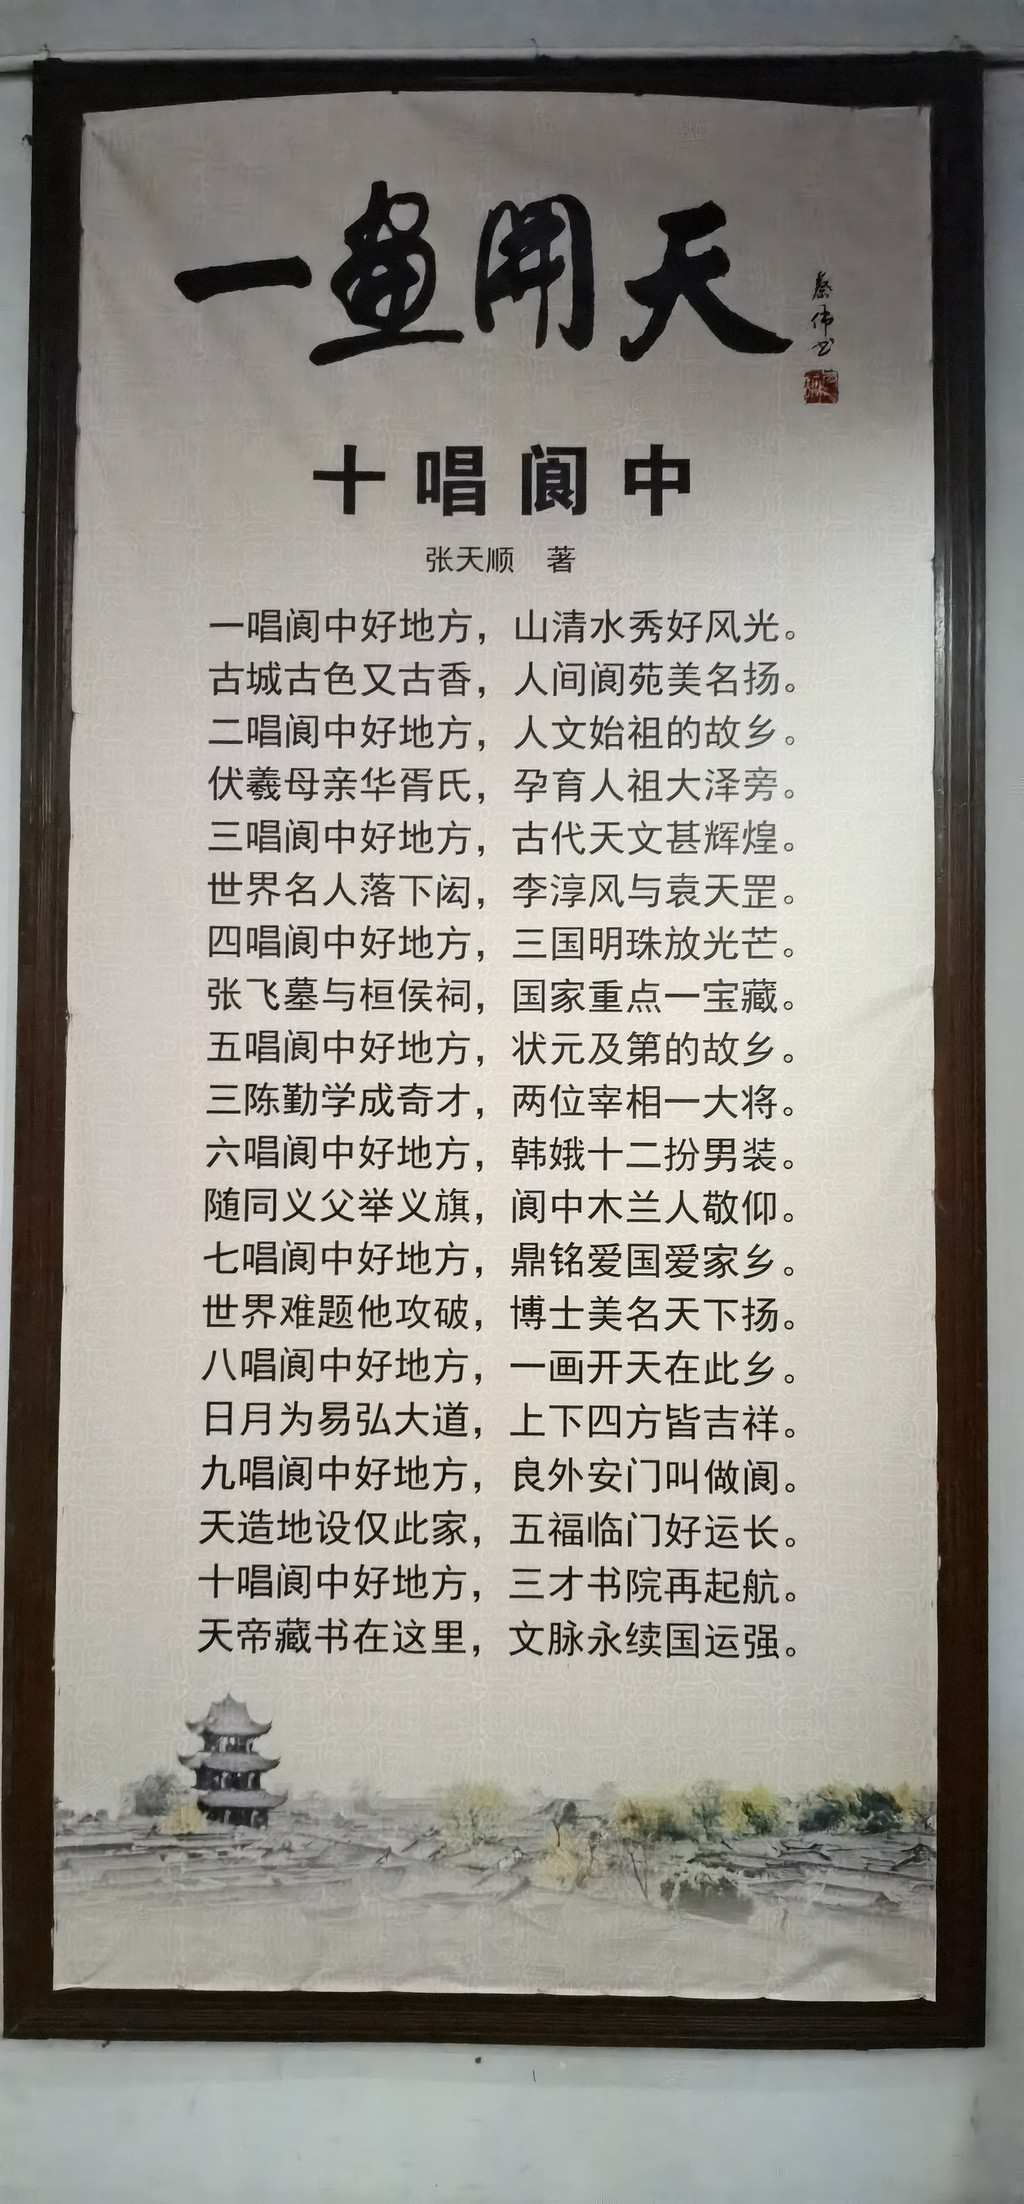 一画开天
蔡伟书
十唱阆中
张天顺 著
一唱阆中好地方，山清水秀好风光。
古城古色又古香，人间阆苑美名扬。
二唱阆中好地方，人文始祖的故乡。
伏羲母亲华胥氏，孕育人祖大泽旁。
三唱阆中好地方，古代天文甚辉煌。
世界名人落下闳，李淳风与袁天罡。
四唱阆中好地方，三国明珠放光芒。
张飞墓与桓侯祠，国家重点一宝藏。
五唱阆中好地方，状元及第的故乡。
三陈勤学成奇才，两位宰相一大将。
六唱阆中好地方，韩娥十二扮男装。
随同义父举义旗，阆中木兰人敬仰。
七唱阆中好地方，鼎铭爱国爱家乡。
世界难题他攻破，博士美名天下扬。
八唱阆中好地方，一画开天在此乡。
日月为易弘大道，上下四方皆吉祥。
九唱阆中好地方，良外安门叫做阆。
天造地设仅此家，五福临门好运长。
十唱阆中好地方，三才书院再起航。
天帝藏书在这里，文脉永续国运强。